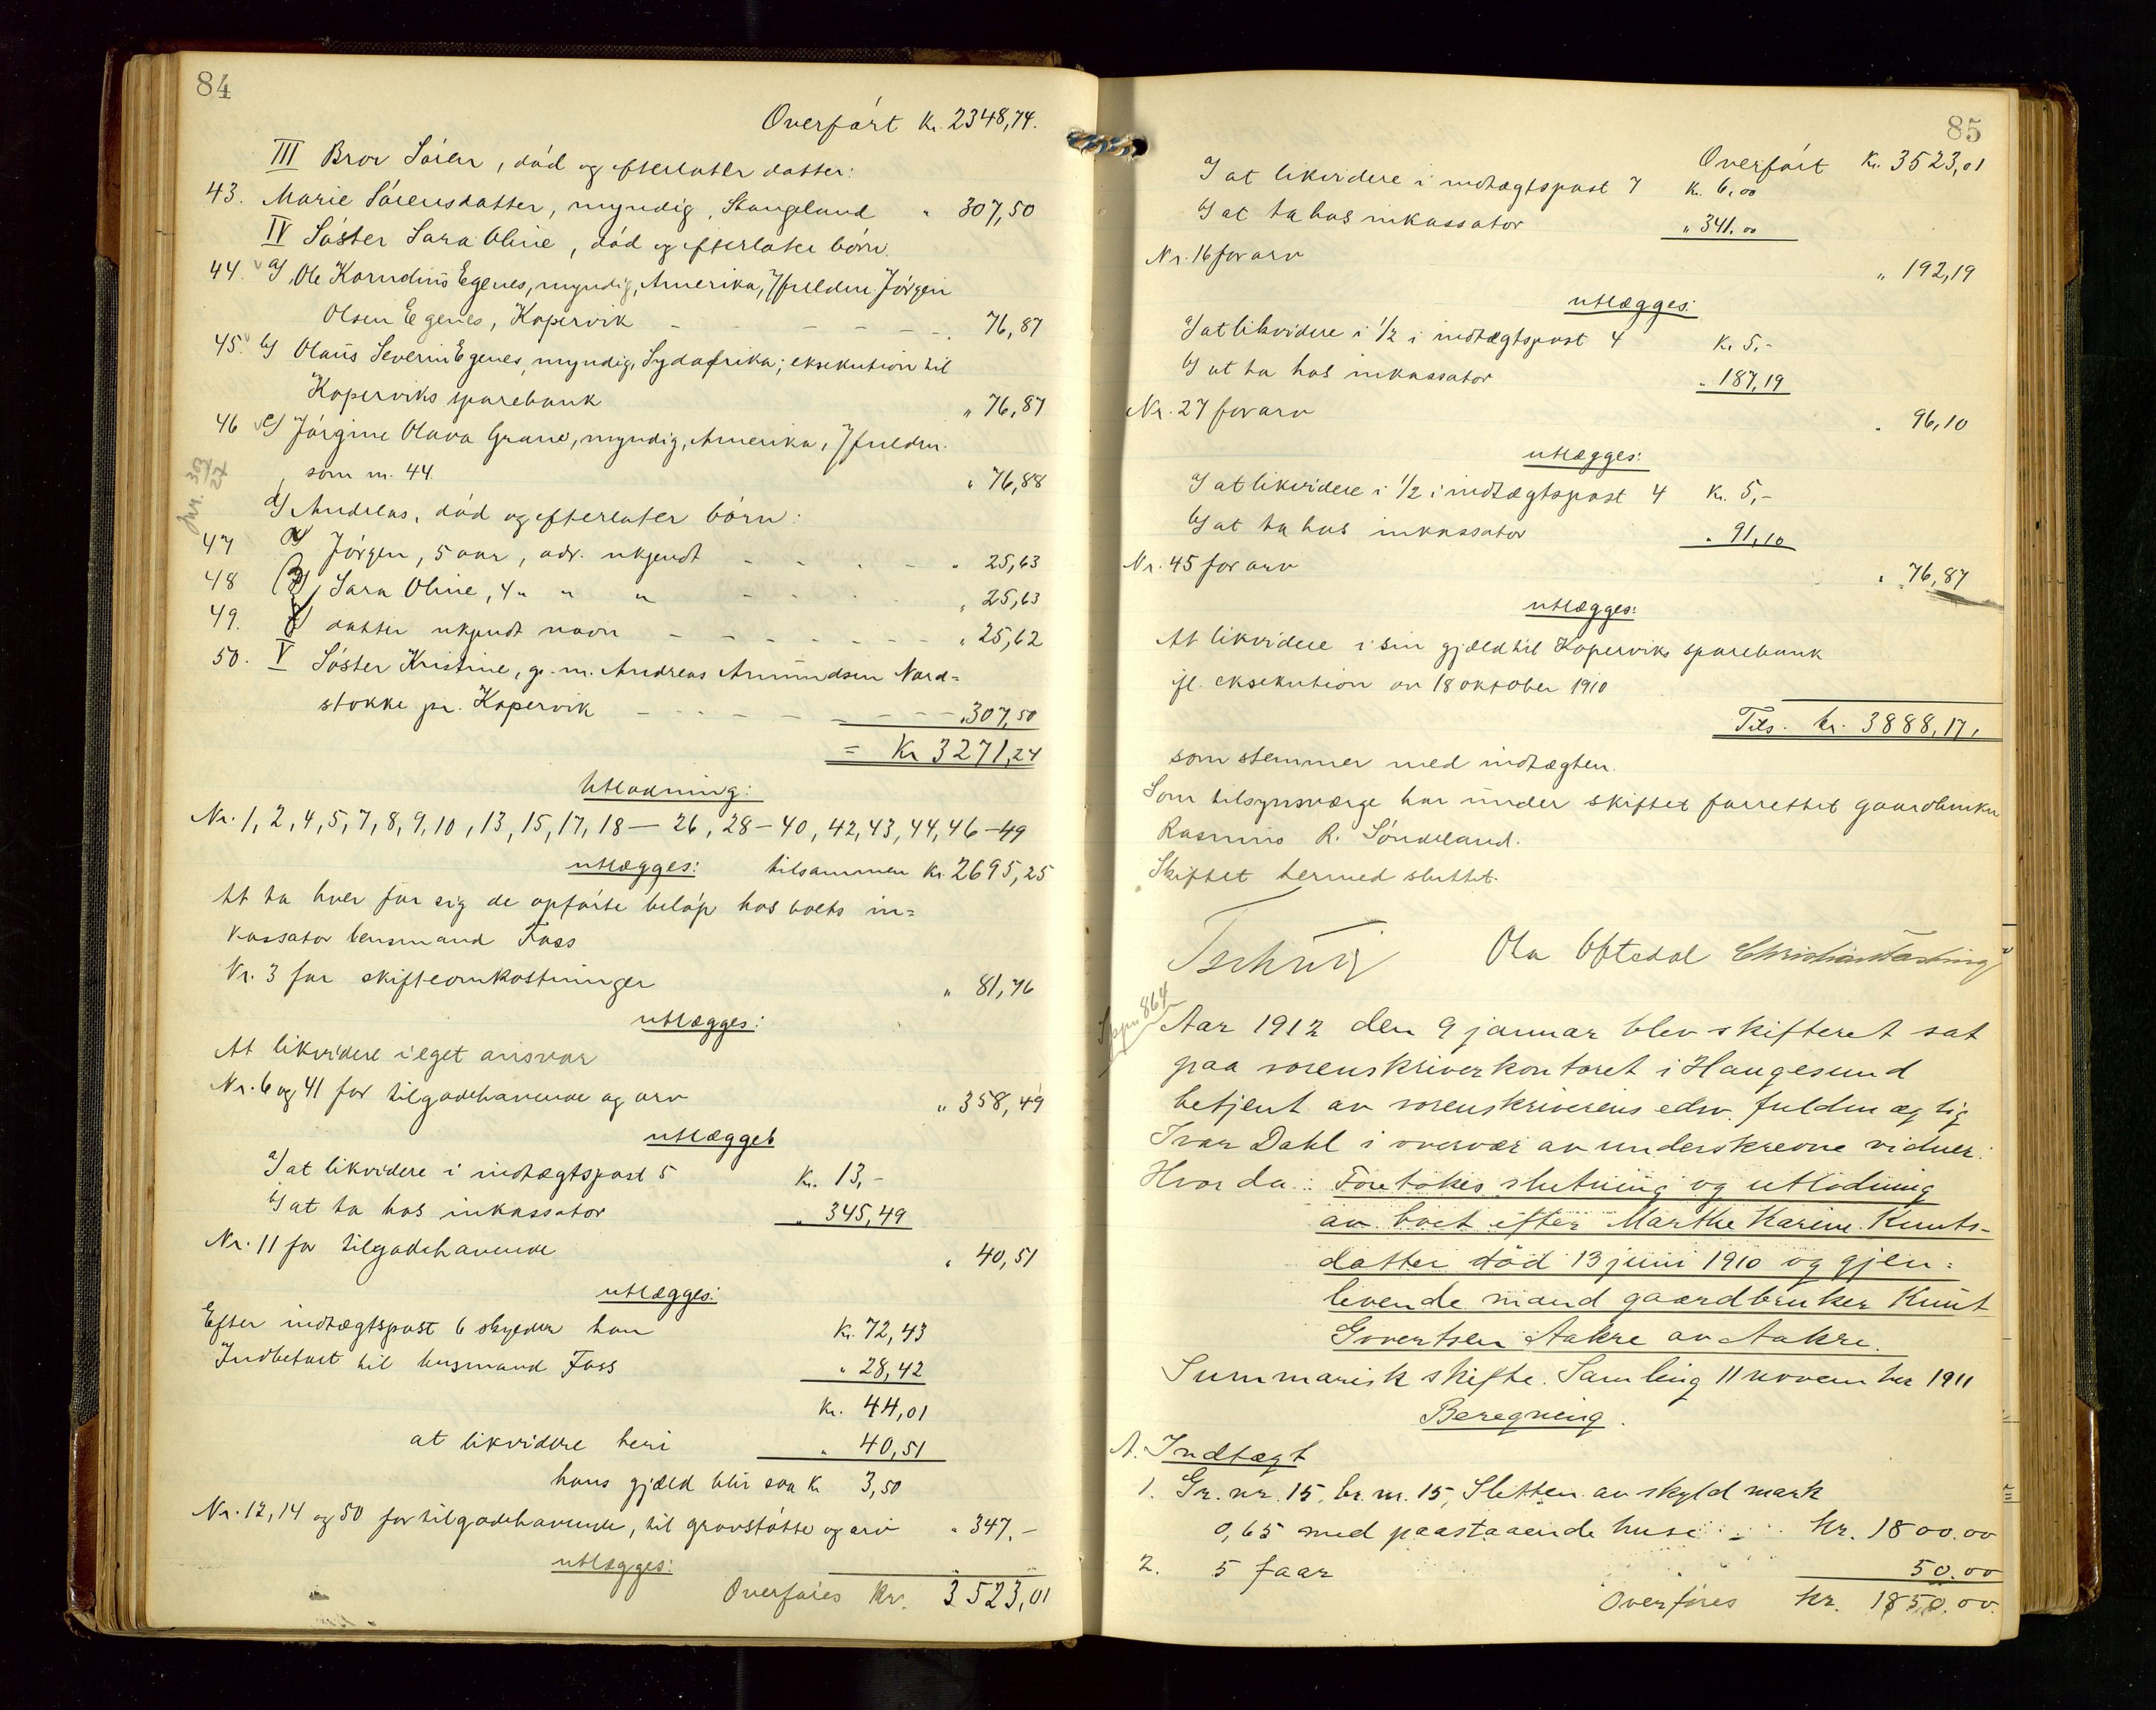 84
Overført Kr. 2348,74.
III Bror Søren, død og efterlater datter:
43. Marie Sørensdatter, myndig, Stangeland " 307,50
IV Søster Sara Oline, død og efterlater børn.
44. a) Ole Kornelius Egenes, myndig, Amerika, v/ fuldm. Jørgen
Olsen Egenes, Kopervik - - - - - - 76,87
45. b) Olaus Severin Egenes, myndig, Sydafrika; eksekution til
Koperviks sparebank " 76,87
46 c) Jørgine Olava Grane, myndig, Amerika, v/ fuldm.
som nr. 44. " 76,88
Jnr. 303/27
d) Andreas, død og efterlater børn:
47 α) Jørgen, 5 aar, adr. ukjendt - - - - " 25,63
48 β) Sara Oline, 4 " " " - - - " 25,63
49. γ) datter ukjendt navn - - - - - - - " 25,62
50. V Søster Kristine, g. m. Andreas Amundsen Nord=
stokke pr. Kopervik - - - - - - - - 307,50
= Kr 3271,24
Utlodning:
Nr. 1, 2, 4, 5, 7, 8, 9, 10, 13, 15, 17, 18 — 26, 28 – 40, 42, 43, 44, 46 – 49
utlægges: tilsammen Kr. 2695,25
At ta hver for sig de opførte beløp hos boets in=
kassator lensmand Foss
Nr. 3 for skifteomkostninger " 81,76
utlægges:
At likvidere i eget ansvar
Nr. 6 og 41 for tilgodehavende og arv " 358,49
utlægges
a) at likvidere i indtægtspost 5 Kr. 13,-
b) at ta hos inkassator " 345,49
Nr. 11 for tilgodehavende " 40,51
utlægges:
Efter indtægtspost 6 skylder han Kr. 72,43
Indbetalt til lensmand Foss " 28,42
Kr. 44,01
at likvidere heri " 40,51
hans gjæld blir saa Kr 3,50
Nr. 12, 14 og 50 for tilgodehavende, til gravstøtte og arv " 347.-
utlægges:
Overføres Kr. 3523,01
85
Overført Kr. 3523,01
a) at likvidere i indtægtspost 7 Kr. 6,00
b) at ta hos inkassator " 341,00
Nr. 16 for arv " 192,19
utlægges:
a) at likvidere i 1/2 i indtægtspost 4 Kr. 5,-
b) at ta hos inkassator " 187,19
Nr. 27 for arv " 96,10
utlægges:
a) at likvidere i 1/2 i indtægtspost 4 Kr. 5,-
b) at ta hos inkassator " 91,10
Nr. 45 for arv " 76,87
utlægges:
At likvidere i sin gjæld til Koperviks sparebank
ifl. eksekution av 18 oktober 1910
Tils. kr. 3888,17,
som stemmer med indtægten.
Som tilsynsværge har under skiftet forrettet gaardbruker
Rasmus R. Søndeland.
Skiftet dermed sluttet.
Ola Oftedal Christian Fasting
864
Aar 1912 den 9 januar blev skifteret sat
paa sorenskriverkontoret i Haugesund
betjent av sorenskriverens edsv. fuldmægtig
Ivar Dahl i overvær av underskrevne vidner:
Hvorda: Foretokes slutning og utlodning
av boet efter Marthe Karine Knuts-
datter död 13 juni 1910 og gjen=
levende mand gaardbruker Knut
Govertsen Aakre av Aakre.
Summarisk skifte. Samling 11 november 1911
Beregning.
A. Indtægt
1. Gr. nr. 15, br. nr. 15, Sletten av skyld mark
0,65 med paastaaende huse : - Kr. 1800.00
2. 5 faar 50.00
Overføres Kr. 1850.00.